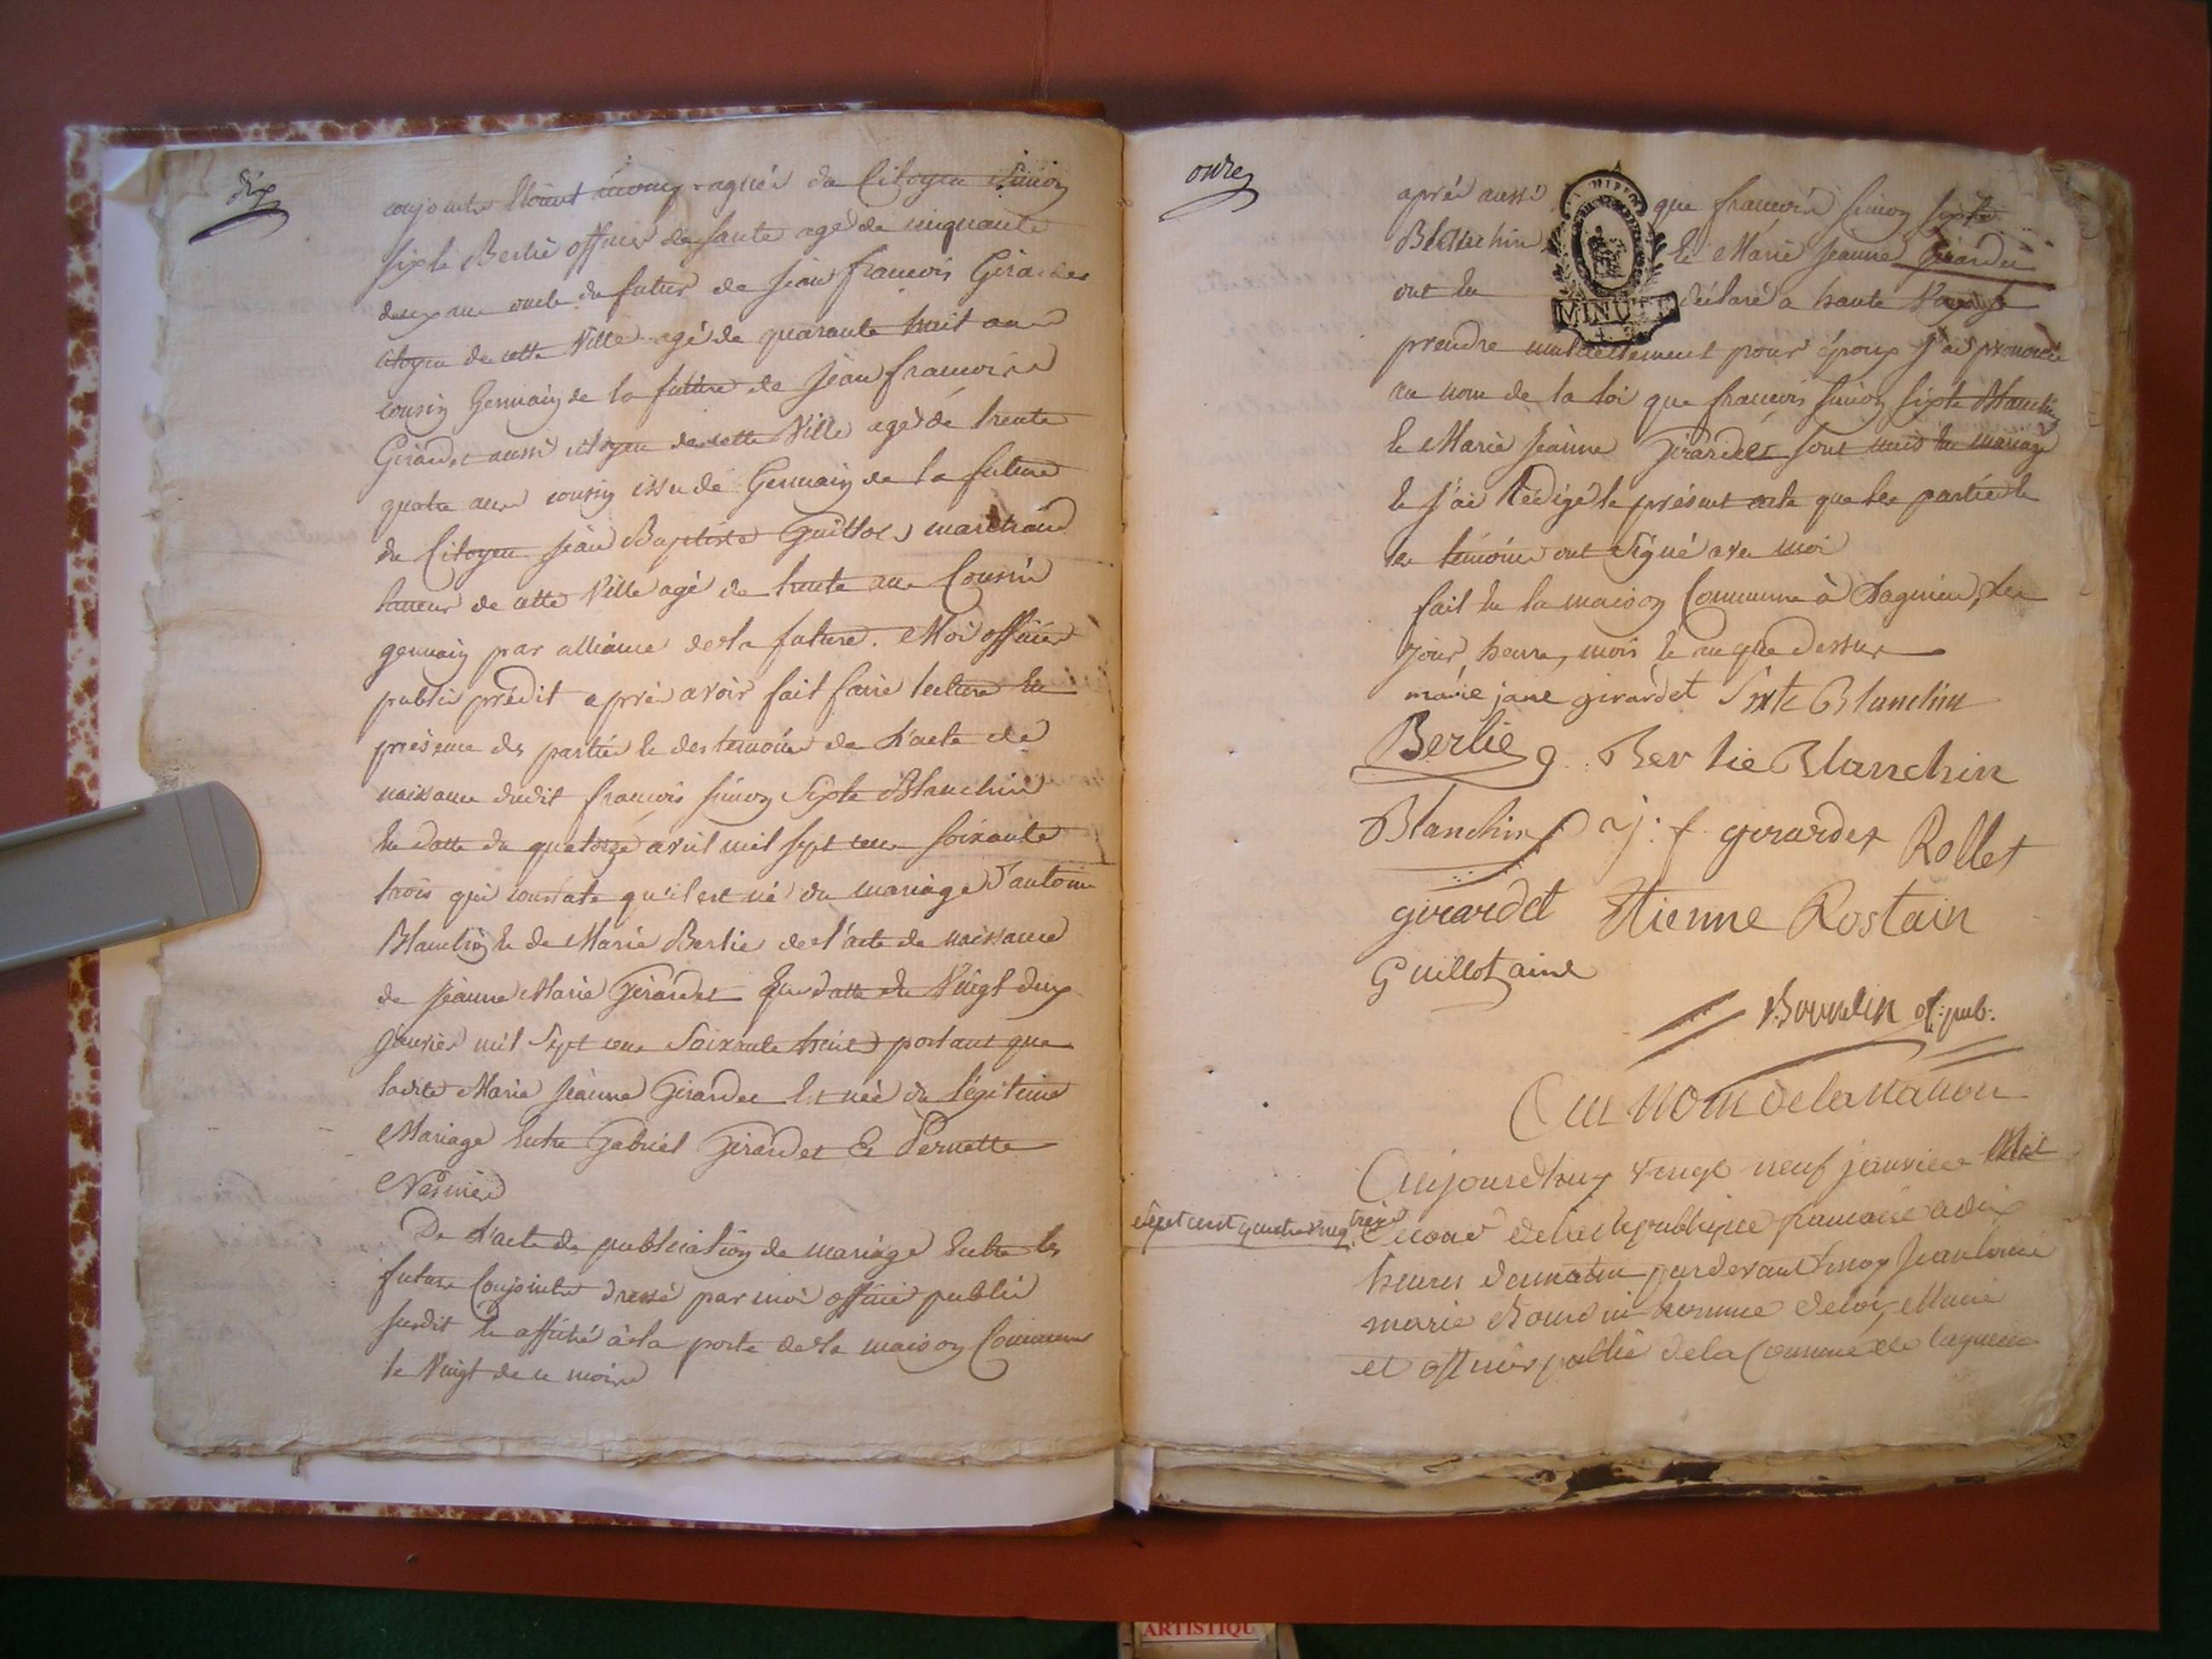 dix
conjointe étant accompagnés du Citoyen Simon
sixte Berlié officier de santé agé de cinquante
deux ans oncle du futur de jean francois Girardet
citoyen de cette Ville agé de quarante huit ans
cousin Germain de la future de jean francois
Girardet aussi citoyen de cette Ville agé de trente
quatre ans cousin issu de Germain de la future
du Citoyen jean Baptiste Guillot marchand
taneur de cette Ville agé de trente ans Cousin
germain par alliance de la future. Moi officier
public prédit après avoir fait faire lecture en
présence des parties et des temoins de L'acte de
naissance dudit francois simon Sixte Blanchin
en datte du quatorze avril mil sept cens soixante
trois qui constate qu'il est né du mariage d'antoine
Blanchin et de Marie Berlie de l'acte de naissance
de jeanne Marie Girardet en datte du Vingt deux
janvier mil Sept cens Soixante treize portant que
ladite Marie jeanne Girardet est née du légitime
Mariage entre Gabriel Girardet & Pernette
De L'acte de publication de mariage entre les
futurs Conjoints dressé par moi officier public
susdit et affiché à la porte de la maison Commune
le Vingt de ce mois
onze
après aussi que francois simon sixte
Blanchin et Marie jeanne Girardet
ont eu déclaré a haute Voix se
MINUTE
prendre mutuellement pour époux j'ai prononcé
au nom de la loi que francois simon sixte Blanchin
et Marie jeanne Girardet sont unis en mariage
et j'ai rédigé le présent acte que les parties et
les témoins ont signé avec moi
fait en la maison Commune à Lagnieu, les
jour, heure, mois et an que dessus
marie jane girardet Sixte Blanchin
Berlie g. Berlie Blanchin
Blanchin j: f girardet Rollet
girardet Etienne Rostain
Guillot ainé
Bourdin of: pub:
Au Nom de la Nation
Aujourdhuy vingt neuf janvier Mil
Sept cent quatre vingt treize Second de la Republique francaise a dix
heures du matin pardevant moy jean louis
marie Bourdin homme de loi, Maire
et officier public de la Commune de lagnieu
ARTISTIQU